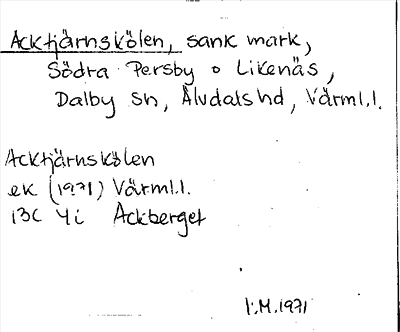 Acktjärnskölen, sank mark,
Södra Persby o Likenäs,
Dalby sn, Älvdals hd, Värml.l.
Acktjärnskölen
ek (1971) Värml.l.
13C 4i Ackberget
I:M.1971